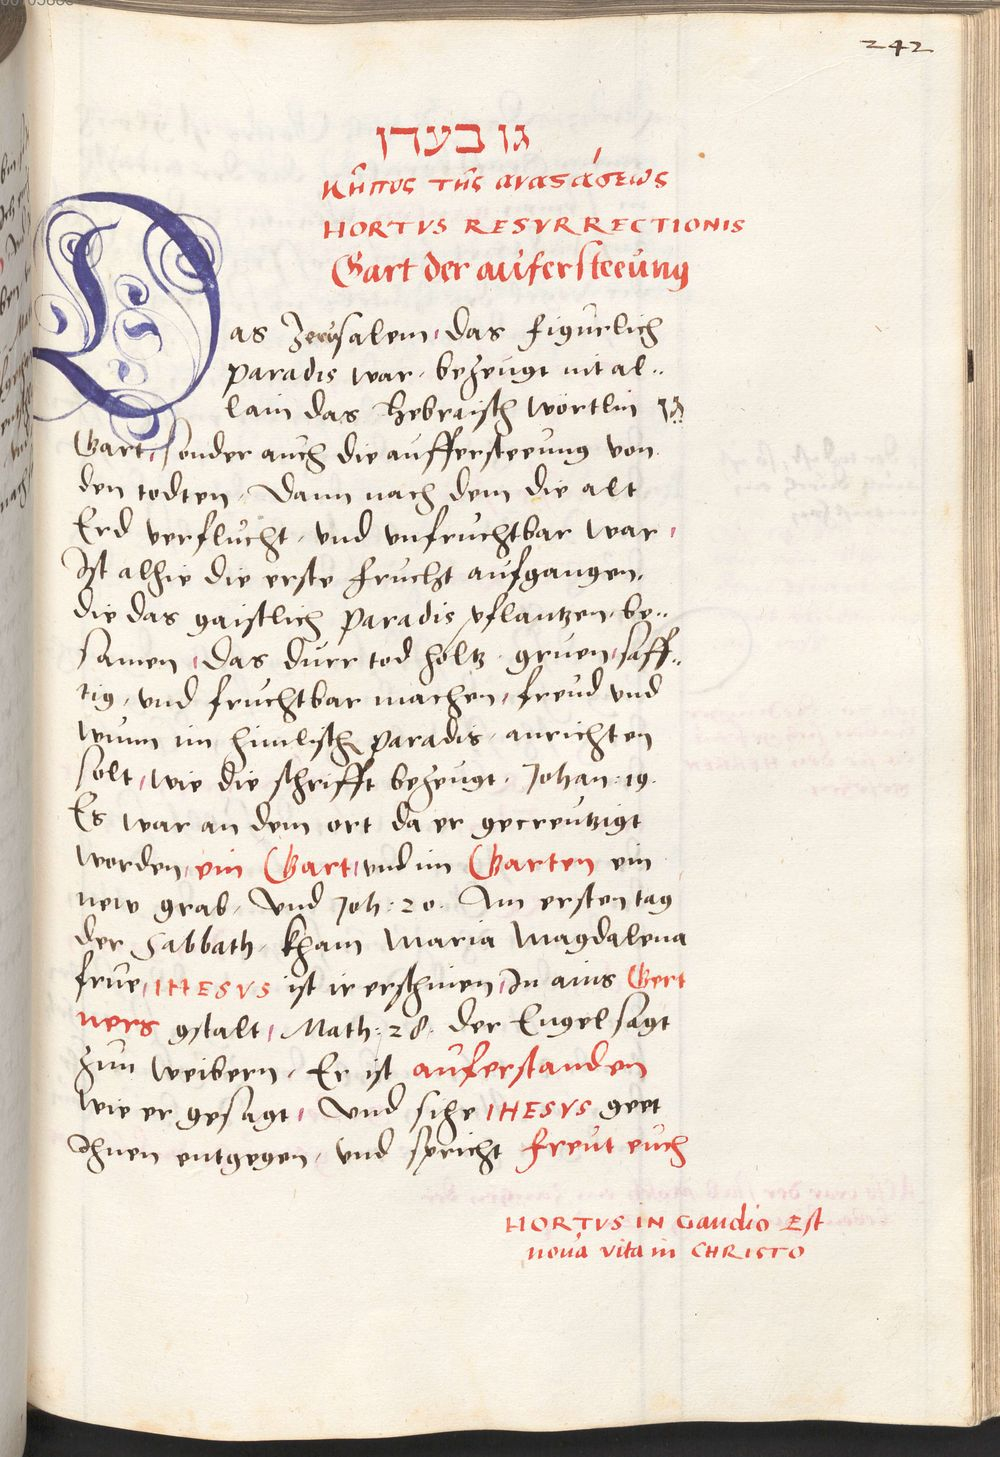 242
גן בעדן
κῆπος τῆς αναςάσεως
HORTVS RESVRRECTIONIS
Gart der aufersteeung
Das Jerusalem, das figurlich
paradis war, bezeugt nit al„
lain das Hebraisch wörtlin גן
Gart, sonder auch die auffersteeung von
den todten, Dann nach dem die alt
Erd verflucht, und unfruchtbar war,
Ist alhie die erste frucht aufgangen,
die das gaistlich paradis pflantzen, be„
samen, das durr tod holtz, gruen, safft„
tig, und fruchtbar machen, freud und
wunn im himlisch paradis, anrichten
solt, wie die schrifft bezeugt, Johan: 19.
Es war an dem ort da er gecreutzigt
worden, ein Gart, und im Garten ein
new grab, Und Joh: 20. Am ersten tag
der Sabbath, kham Maria Magdalena
frue, IHESVS ist ir erschinen, In ains Gert
ners gstalt, Math: 28. der Engel sagt
zun weibern, Er ist auferstanden
wie er gesagt, Und sihe IHESVS geet
Ihnen entgegen, und spricht freut euch
HORTVS IN Gaudio Est
noua vita in CHRISTO